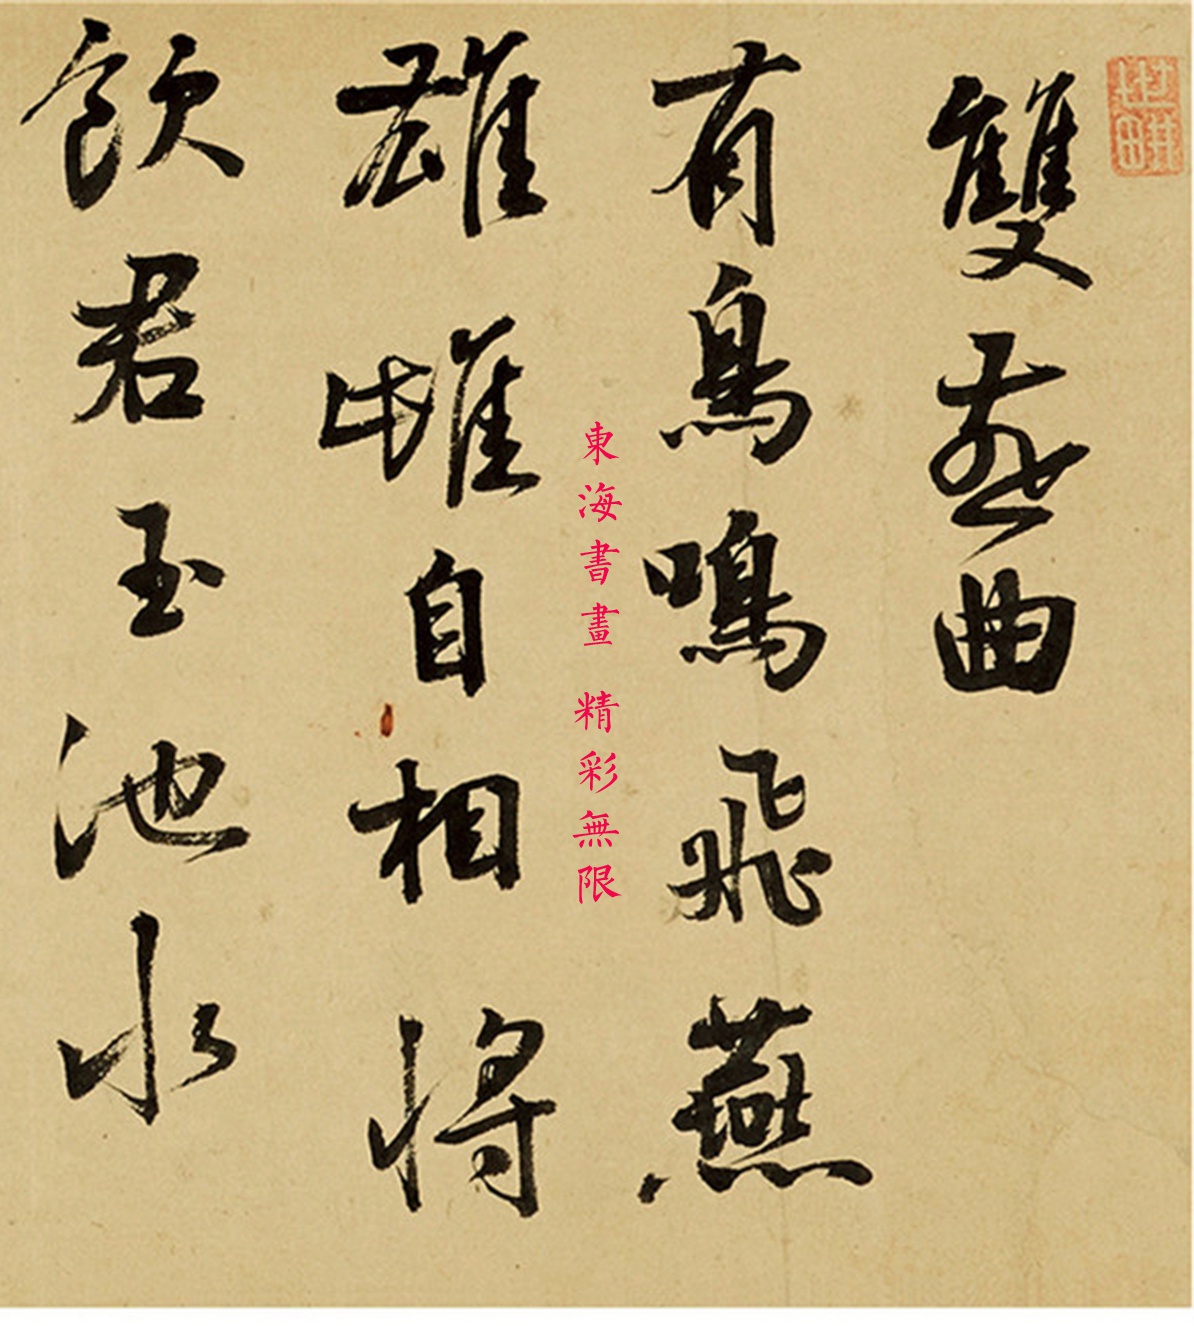 雙燕曲
有鳥鳴飛燕
雄雌自相將
飲君玉池水
東海書畫 精彩無限